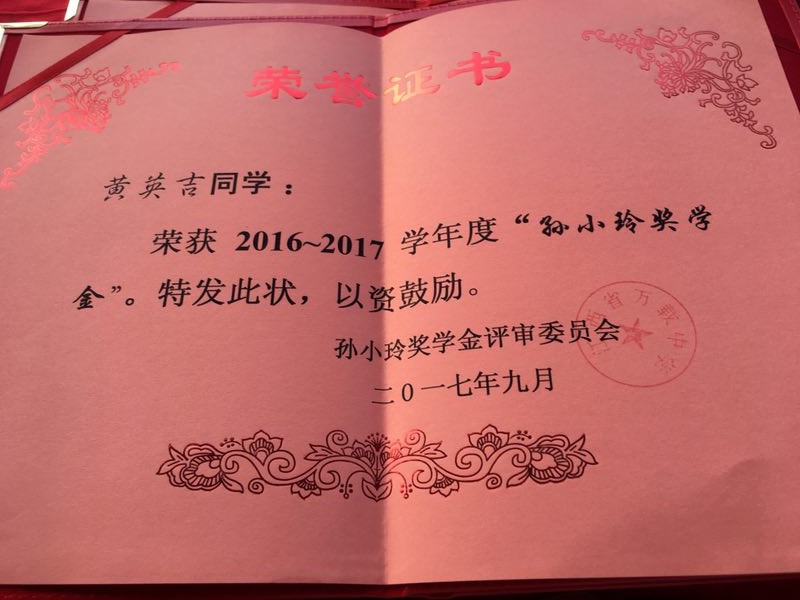 荣誉证书
黄英吉同学：
荣获 2016~2017 学年度“孙小玲奖学
金”。特发此状，以资鼓励。
孙小玲奖学金评审委员会
二0一七年九月
江西省万载中学